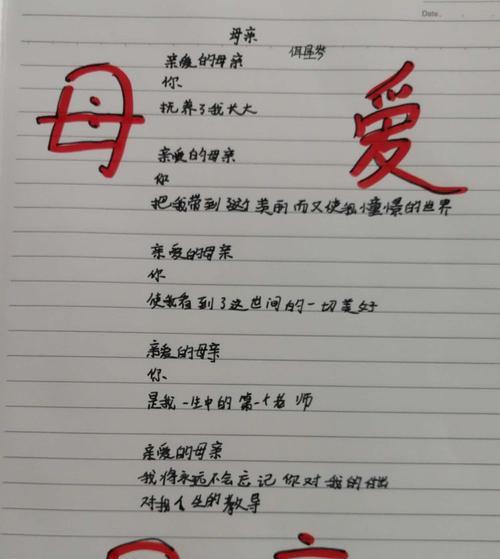 Date.
母亲
母 爱
亲爱的母亲
你
抚养了我长大
亲爱的母亲
你
把我带到这个美丽而又使我憧憬的世界
亲爱的母亲
你
使我看到了这世间的一切美好
亲爱的母亲
你
是我一生中的第一个老师
亲爱的母亲
我将永远不会忘记你对我的付出
对我人生的教导
母 亲